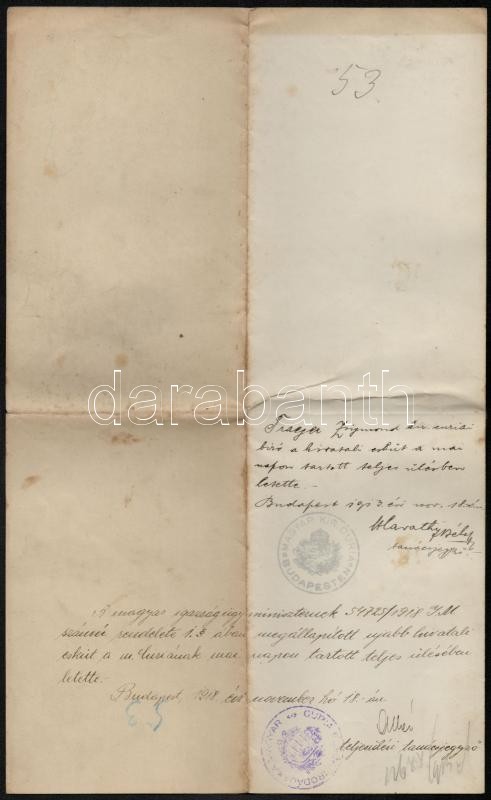 53.
darabanth
Zsigmond úr curiai
biró a hivatali esküt a mai
napon tartott teljes ülésben
letette.-
Budapest 1913. évi nov.
Béla
tanácsjegyző
MAGYAR KIR. CURIA
BUDAPESTEN
A magyar igazságügyminiszternek 54725/1918 I.M.
számú rendelete 1.§ ában megállapított ujabb hivatali
esküt a m. Curiának mai napon tartott teljes ülésében
letette.-
Budapest, 1918. évi november hó 18.-án
tanácsjegyző